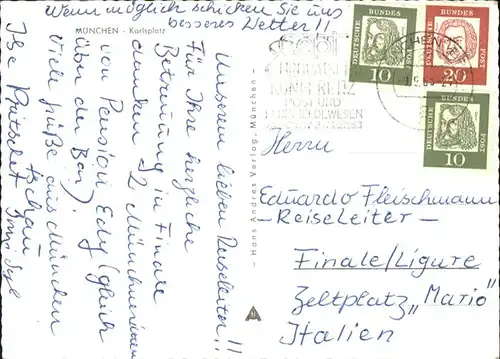 Wenn möglich schicken Sie uns
besseres Wetter!
MÜNCHEN - Karlsplatz
Unserem lieben Reiseleiter!!
Für Ihre herzliche
Betreuung in Finale
danken 2 Münchnerinnen
von Pension Edy (gleich
über der Bar).
Viele Grüße aus München
tschau
Ilse
- Hans Andres Verlag, München -
DEUTSCHE BUNDES POST
10
DEUTSCHE BUNDES POST
20
DEUTSCHE BUNDES POST
10
POST UND
FERNMELDEWESEN
Herrn
Eduardo Fleischmann
- Reiseleiter -
Finale/Ligure
Zeltplatz „Mario"
Italien